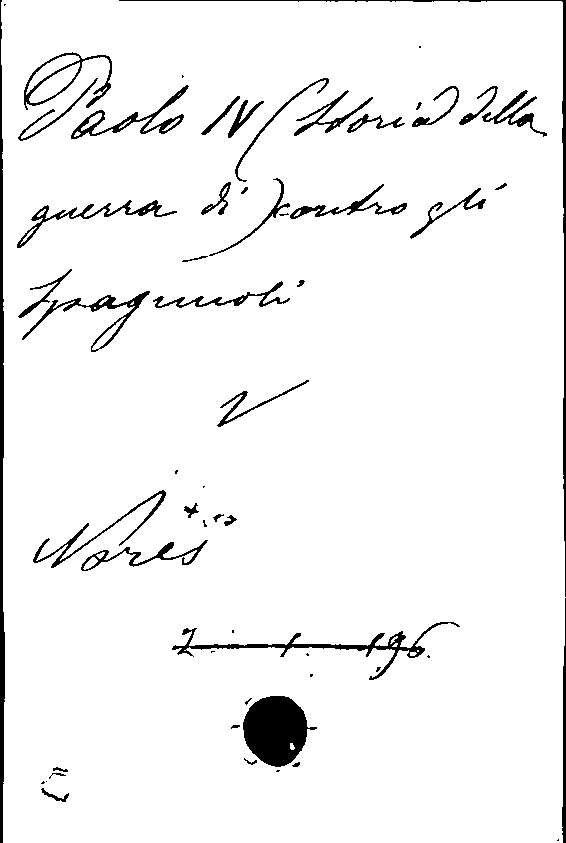 Paolo IV (Storia della
guerra di) contro gli
Spagnuoli
V
Nores
2. 1. 196.